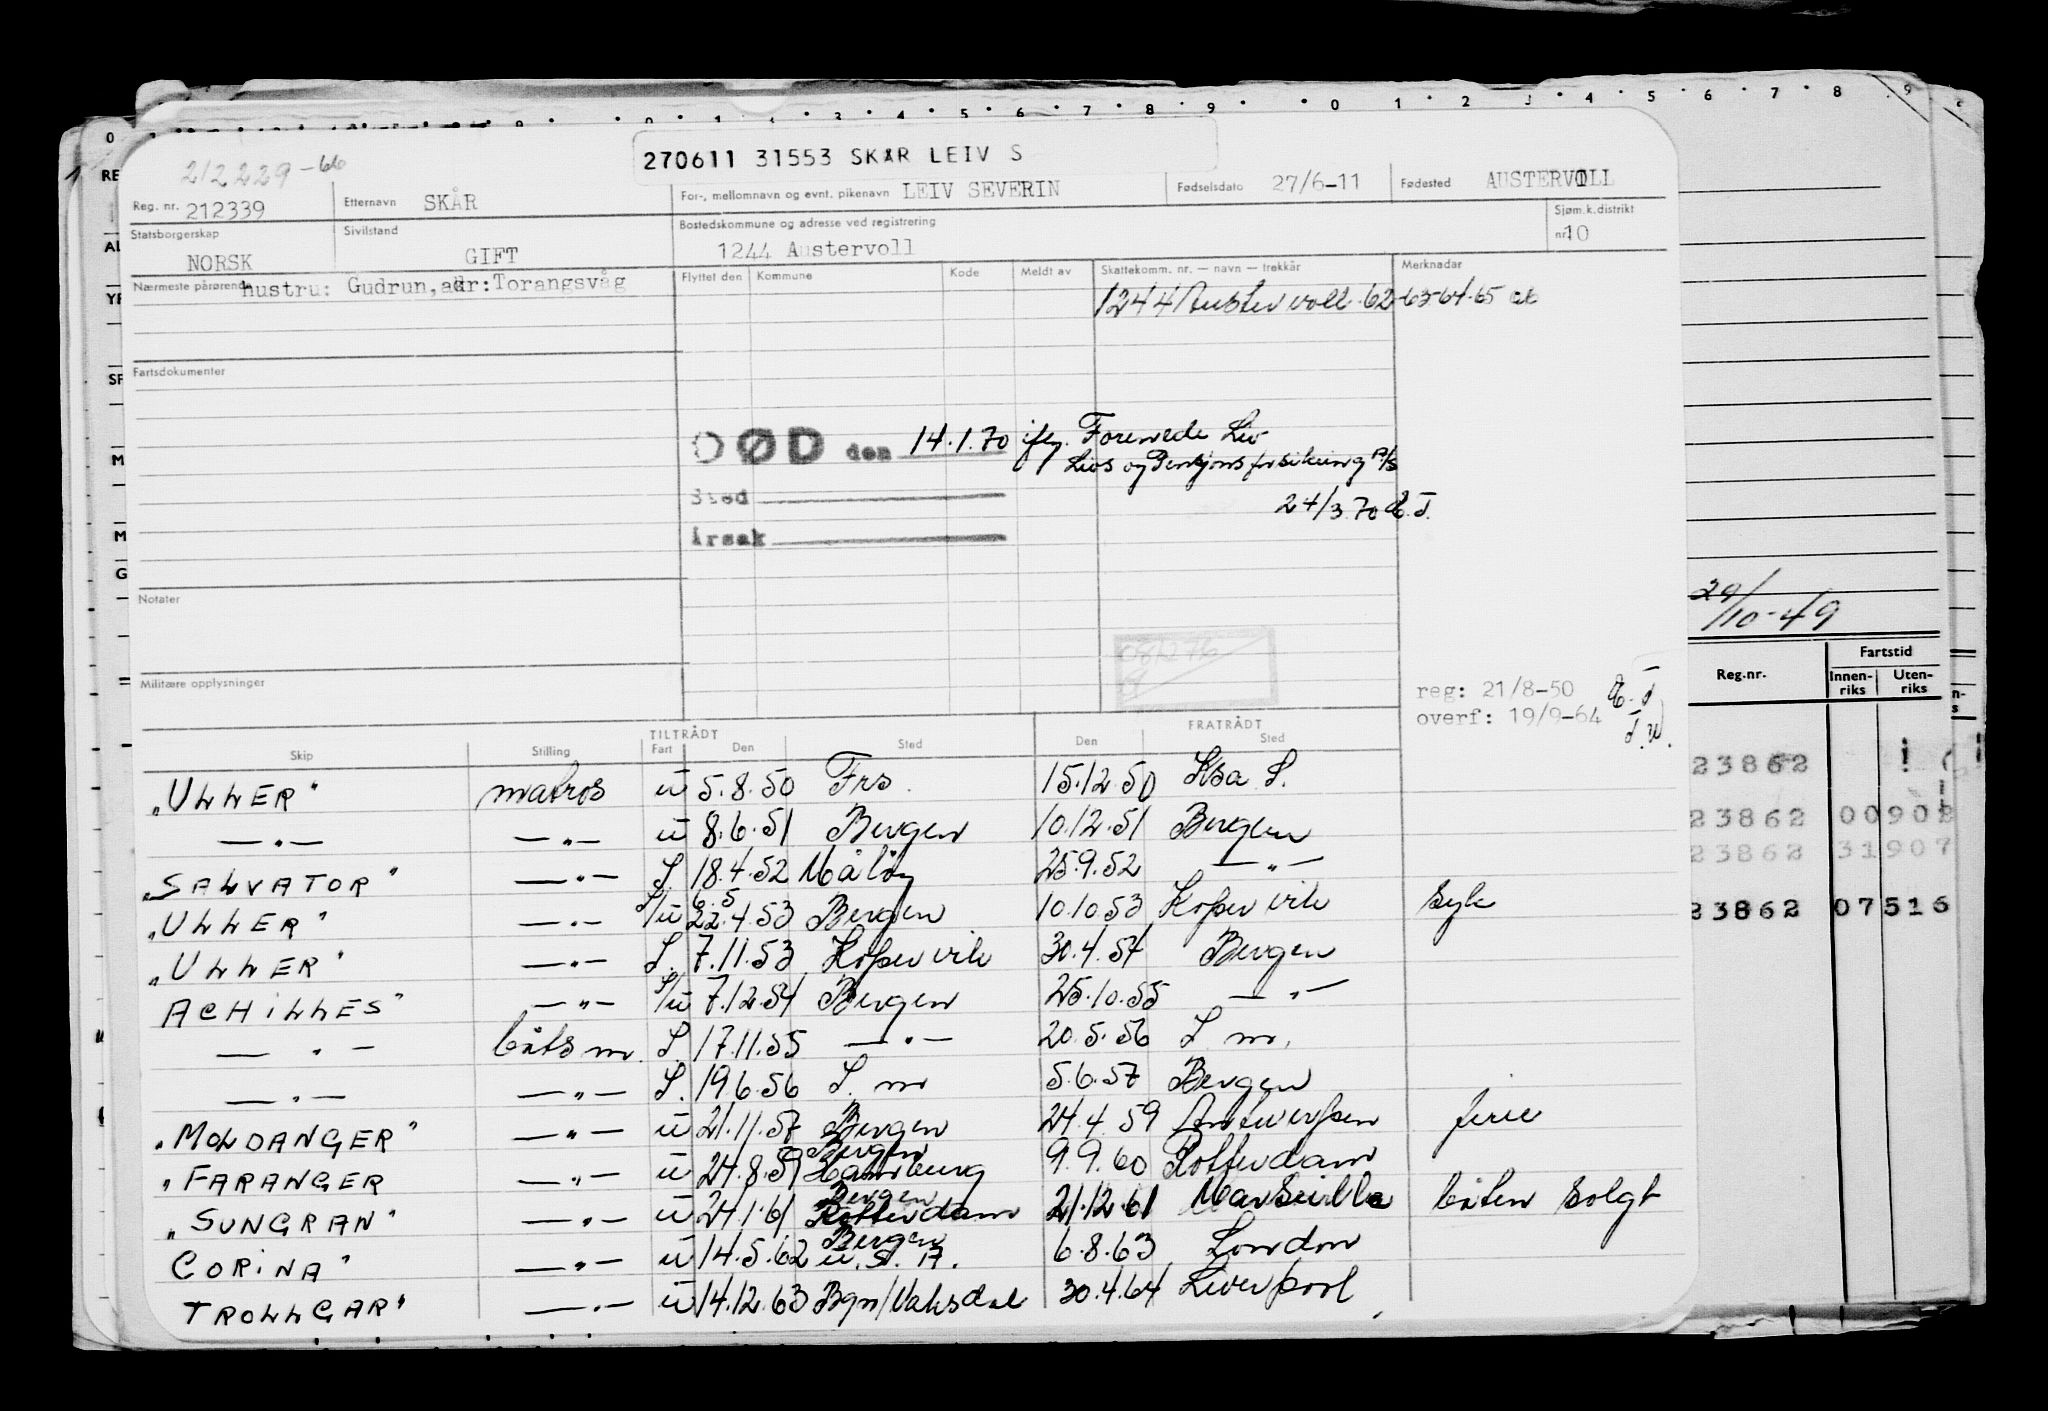 270611 31553 SKAR LEIV S
212229-66
Reg. nr. 212339 Etternavn SKÅR For-, mellomnavn og evnt. pikenavn LEIV SEVERIN Fødselsdato 27/6-11 Fødested AUSTERVOLL
Statsborgerskap NORSK Sivilstand GIFT Bostedskommune og adresse ved registrering 1244 Austervoll Sjøm.k.distrikt nr. 10
Nærmeste pårørende hustru: Gudrun, adr: Torangsvåg Flyttet den Kommune Kode Meldt av Skattekomm. nr. — navn — trekkår Merknadar
1244 Austervoll. 62-63-64-65
Fartsdokumenter
DØD den 14.1.70 ifg. Forenede Liv
Livs og Pensjonsforsikring A/S
Sted
24/3.70 E.T.
Årsak
Notater
29/10-49
Militære opplysninger
reg: 21/8-50
overf: 19/9-64
Reg.nr. Fartstid
Innen-riks Uten-riks
TILTRÅDT FRATRÅDT
Skip Stilling Fart Den Sted Den Sted
"ULLER" matros u 5.8.50 Frs. 15.12.50 Ksa S.
—"— —"— u 8.6.51 Bergen 10.12.51 Bergen
"SALVATOR" —"— S 18.4.52 Måløy 25.9.52 —"—
"ULLER" —"— S/u 22.4.53 Bergen 10.10.53 Kopervik syk
6.5
"ULLER" —"— S. 7.11.53 Kopervik 30.4.54 Bergen
ACHILLES" —"— S/u 7.12.54 Bergen 25.10.55 —"—
—"— båtsm. S. 17.11.55 —"— 20.5.56 S m.
—"— —"— S. 19.6.56 S. m 5.6.57 Bergen
"MOLDANGER" —"— u 21.11.57 Bergen 24.4.59 Antwerpen ferie
Bergen
"FARANGER —"— u 24.8.59 Hamburg 9.9.60 Rotterdam
Bergen
"SUNGRAN" —"— u 24.1.61 Rotterdam 21.12.61 Marseille båten solgt
Bergen
CORINA" —"— u 14.5.62 U.S.A. 6.8.63 London
TROLLGAR" —"— u 14.12.63 Bgn/Vaksdal 30.4.64 Liverpool
23862
23862 00908
23862 31907
23862 07516